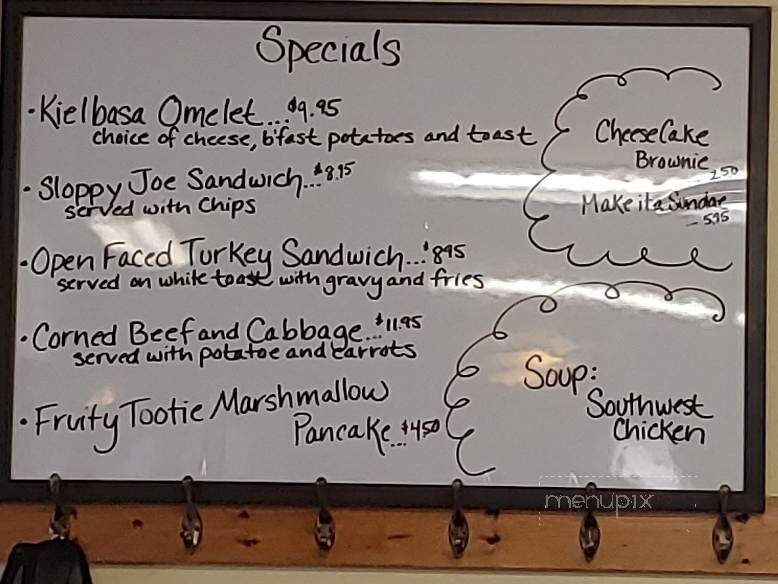 Specials
• Kielbasa Omelet...$9.95
choice of cheese, b'fast potatoes and toast
• Sloppy Joe Sandwich...$8.95
served with Chips
• Open Faced Turkey Sandwich...$8.95
served on white toast with gravy and fries
• Corned Beef and Cabbage...$11.95
served with potatoe and carrots
• Fruity Tootie Marshmallow
Pancake...$4.50
CheeseCake
Brownie
...2.50
Make it a Sundae
...5.95
Soup:
Southwest
Chicken
menupix